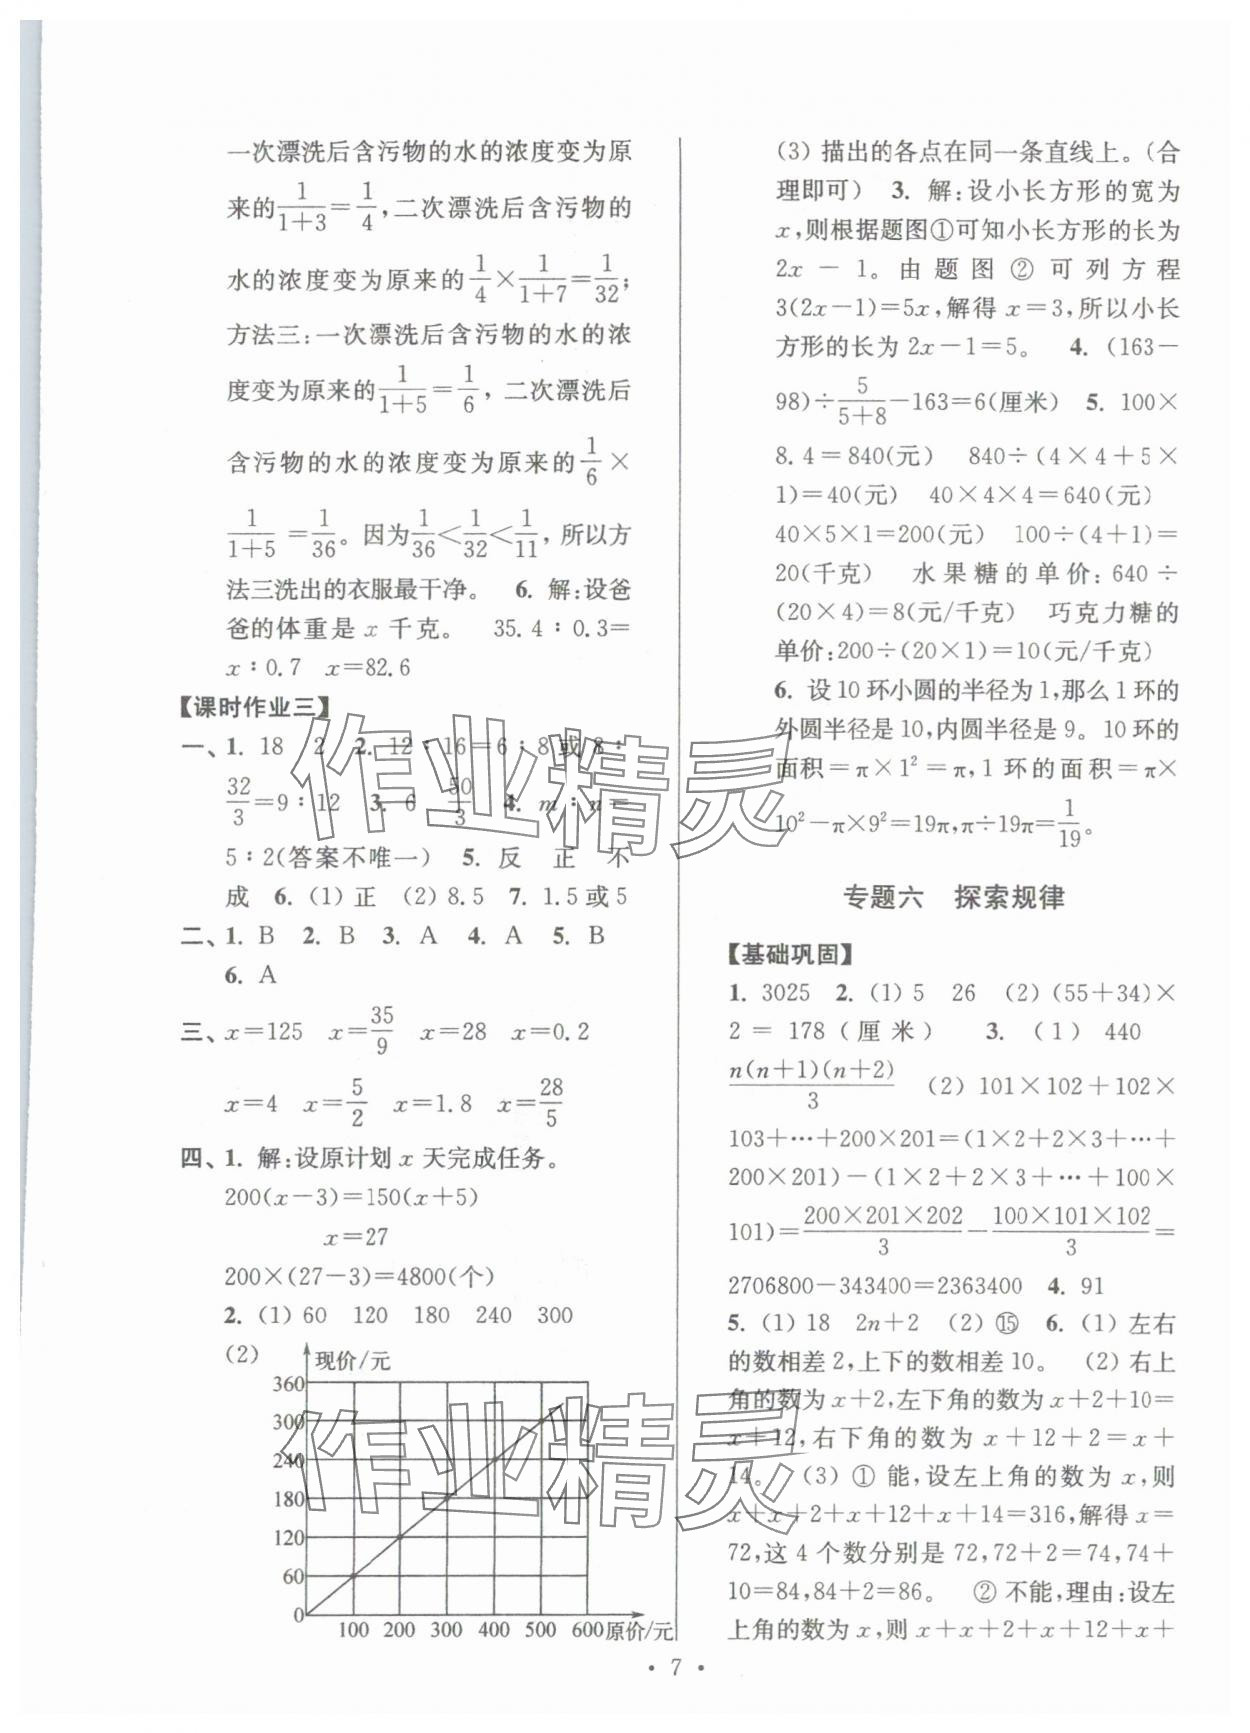 一次漂洗后含污物的水的浓度变为原
来的1/(1+3)=1/4,二次漂洗后含污物的
水的浓度变为原来的1/4×1/(1+7)=1/32;
方法三:一次漂洗后含污物的水的浓
度变为原来的1/(1+5)=1/6,二次漂洗后
含污物的水的浓度变为原来的1/6×
1/(1+5)=1/36。因为1/36<1/32<1/11,所以方
法三洗出的衣服最干净。 6. 解:设爸
爸的体重是 x 千克。 35.4∶0.3=
x∶0.7 x=82.6
【课时作业三】
一、1. 18 2 2. 12∶16=6∶8或8∶
32/3=9∶12 3. 6 50/3 4. m∶n=
5∶2(答案不唯一) 5. 反 正 不
成 6. (1) 正 (2) 8.5 7. 1.5或5
二、1. B 2. B 3. A 4. A 5. B
6. A
三、x=125 x=35/9 x=28 x=0.2
x=4 x=5/2 x=1.8 x=28/5
四、1. 解:设原计划 x 天完成任务。
200(x-3)=150(x+5)
x=27
200×(27-3)=4800(个)
2. (1) 60 120 180 240 300
(2)
现价/元
360
300
240
180
120
60
0
100 200 300 400 500 600 原价/元
(3) 描出的各点在同一条直线上。(合
理即可) 3. 解:设小长方形的宽为
x,则根据题图①可知小长方形的长为
2x-1。由题图②可列方程
3(2x-1)=5x,解得 x=3,所以小长
方形的长为 2x-1=5。 4. (163-
98)÷5/(5+8)-163=6(厘米) 5. 100×
8.4=840(元) 840÷(4×4+5×
1)=40(元) 40×4×4=640(元)
40×5×1=200(元) 100÷(4+1)=
20(千克) 水果糖的单价:640÷
(20×4)=8(元/千克) 巧克力糖的
单价:200÷(20×1)=10(元/千克)
6. 设10环小圆的半径为1,那么1环的
外圆半径是10,内圆半径是9。10环的
面积=π×1²=π,1环的面积=π×
10²-π×9²=19π,π÷19π=1/19。
专题六 探索规律
【基础巩固】
1. 3025 2. (1) 5 26 (2) (55+34)×
2=178(厘米) 3. (1) 440
n(n+1)(n+2)/3 (2) 101×102+102×
103+…+200×201=(1×2+2×3+…+
200×201)-(1×2+2×3+…+100×
101)=200×201×202/3-100×101×102/3=
2706800-343400=2363400 4. 91
5. (1) 18 2n+2 (2) ⑮ 6. (1) 左右
的数相差2,上下的数相差10。 (2) 右上
角的数为 x+2,左下角的数为 x+2+10=
x+12,右下角的数为 x+12+2=x+
14。 (3) ① 能,设左上角的数为 x,则
x+x+2+x+12+x+14=316,解得 x=
72,这4个数分别是72,72+2=74,74+
10=84,84+2=86。 ② 不能,理由:设左
上角的数为 x,则 x+x+2+x+12+x+
• 7 •
作业精灵
作业精灵